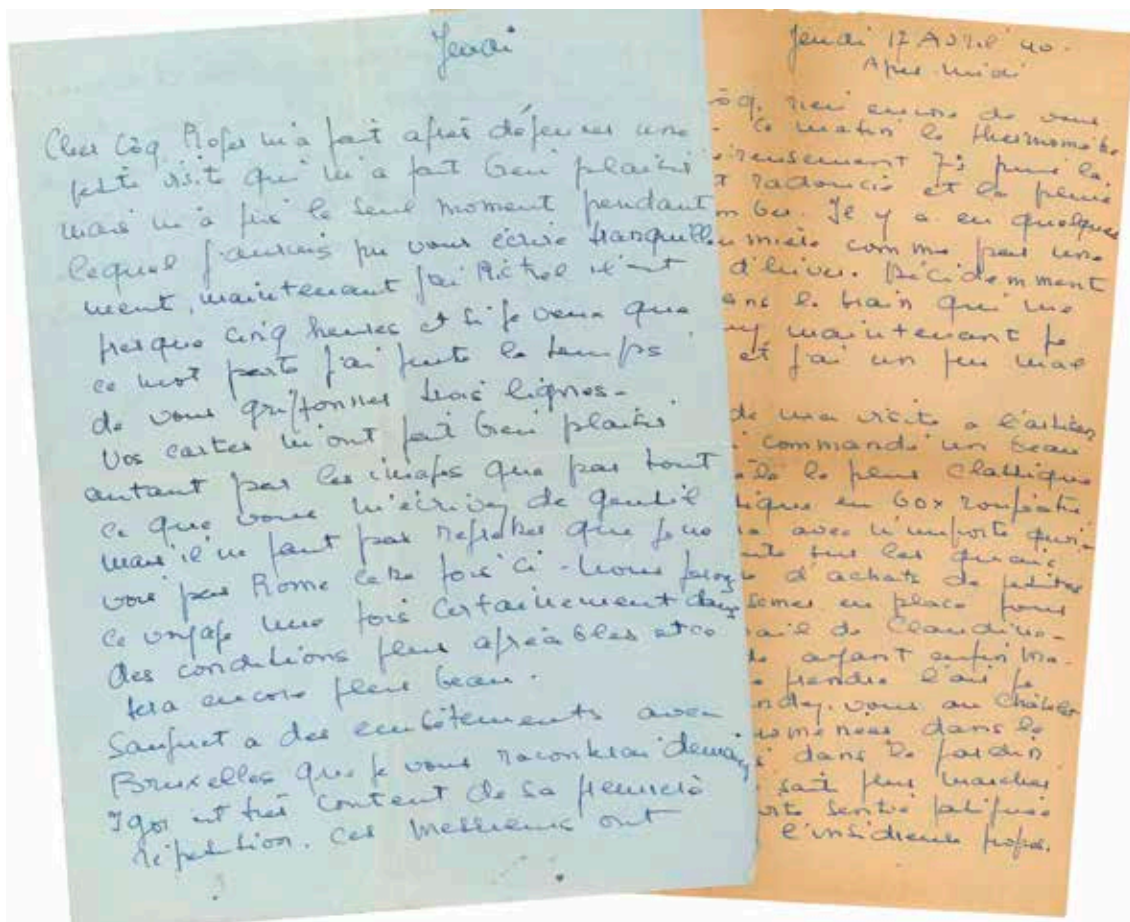 Jeudi
Cher Còq, Roger m'a fait après déjeuner une
petite visite qui m'a fait bien plaisir
mais m'a pris le seul moment pendant
lequel j'aurais pu vous écrire tranquille
ment, maintenant j'ai Michel il est
presque cinq heures et si je veux que
ce mot parte j'ai juste le temps
de vous griffonner trois lignes -
Vos cartes m'ont fait bien plaisir
autant par les images que par tout
ce que vous m'écrivez de gentil
mais il ne faut pas regretter que je ne
vois pas Rome cette fois ci - Nous ferons
ce voyage une fois certainement dans
des conditions plus agréables et ce
sera encore plus beau.
Sauguet a des embêtements avec
Bruxelles que je vous raconterai demain
Igor est très content de sa première
répétition. Ces messieurs ont
Jeudi 17 Avril 40.
Après-midi
rien encore de vous
Ce matin le thermomètre
puis la
radoucie et la pluie
Il y a eu quelques
comme par une
d'hiver. Décidemment
dans le train qui me
maintenant je
et j'ai un peu mal
de ma visite a l'atelier
commandé un beau
le plus classique
en box
avec n'importe quoi -
sur les quais
d'achats de petites
en place pour
de Claudine -
ayant enfin
prendre l'air je
vous au Châtelet
dans le
dans le jardin
sait plus marcher
sentie fatiguée
l'insidieuse